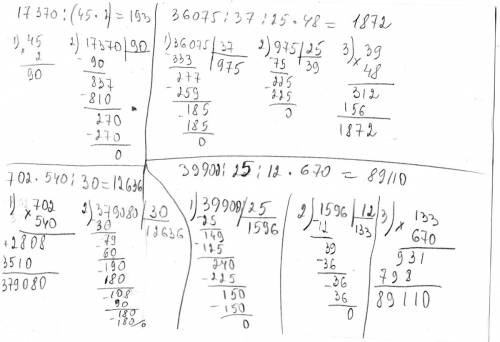 17370:(45·2)=193
1) 45
2
90
2) 17370 90
-90
837
-810
270
-270
0
36075:37:25·48= 1872
1) 36075 37
-333 975
277
-259
185
-185
0
2) 975 25
-75 39
225
-225
0
3) 39
x 48
312
156
1872
702·540:30=12636
1) 702
x 540
+2808
3510
379080
2) 379080 30
-30 12636
79
60
-190
180
-108
90
-180
-180
0
39900:25:12·670 = 89110
1) 39900 25
-25 1596
149
-125
240
-225
150
-150
0
2) 1596 12
-12 133
39
-36
36
36
0
3) 133
x 670
931
798
89110